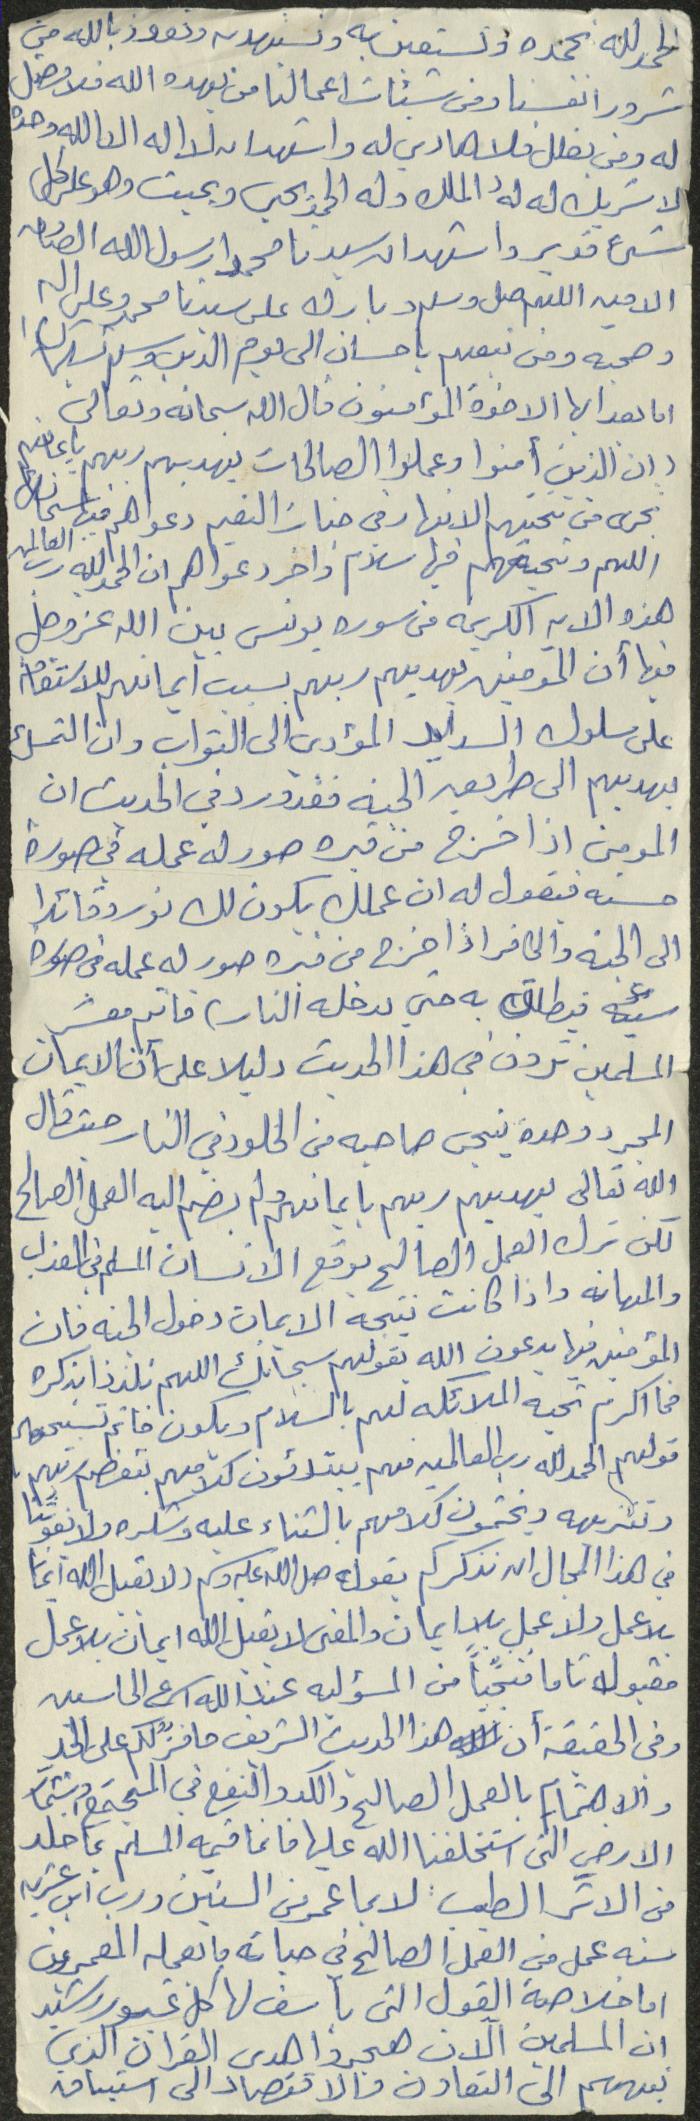 الحمد لله نحمده ونستعين به ونستهديه ونعوذ بالله من
شرور انفسنا ومن سيئات اعمالنا من يهده الله فلا مضل
له ومن يضلل فلا هادي له واشهد ان لا اله الا الله وحده
لا شريك له له الملك وله الحمد يحيي ويميت وهو على كل
شيء قدير واشهد ان سيدنا محمدا رسول الله الصادق
الامين اللهم صل وسلم وبارك على سيدنا محمد وعلى اله
وصحبه ومن تبعهم باحسان الى يوم الدين وسلم تسليما كثيرا
اما بعد ايها الاخوة المؤمنون قال الله سبحانه وتعالى
(ان الذين أمنوا وعملوا الصالحات يهديهم ربهم بايمانهم
تجري من تحتهم الانهار في جنات النعيم دعواهم فيها سبحانك
اللهم وتحيتهم فيها سلام وأخر دعواهم ان الحمد لله رب العالمين
هذه الاية الكريمة من سورة يونس بين الله عز وجل
فيها أن المؤمنين يهديهم ربهم بسبب ايمانهم للاستقامة
على سلوك السداد المؤدي الى الثواب وان التمسك
يهديهم الى طريق الجنة فقد ورد في الحديث ان
المومن اذا خرج من قبره صور له عمله في صورة
حسنة فيقول له ان عملك يكون لك نور وقائدا
الى الجنة والكافر اذا خرج من قبره صور له عمله في صورة
سيئة فينطلق به حتى يدخله النار) فانتم معشر
المسلمين ترون في هذا الحديث دليلا على أن الايمان
المجرد وحده ينجي صاحبه من الخلود في النار حيث قال
الله تعالى يهديهم ربهم بايمانهم ولم يضم اليه العمل الصالح
لكن ترك العمل الصالح يوقع الانسان المسلم في العذاب
والمهانه واذا كانت نتيجة الايمان دخول الجنة فان
المؤمنين فيها يدعون الله بقولهم سبحانك اللهم تلذذا بذكره
فما اكرم تحية الملائكة لهم بالسلام ويكون خاتم تسبيحهم
قولهم الحمد لله رب العالمين فهم يبتدئون كلامهم بتعظيم ربهم
وتنزيهه ويختمون كلامهم بالثناء عليه وشكره ولا يفوتنا
في هذا المجال ان نذكركم بقوله صلى الله عليه وسلم (لا يقبل الله ايمانا
بلا عمل ولا عمل بلا ايمان والمعنى لا يقبل الله ايمان بلا عمل
مقبولا تاما منجيا من المسؤلية عند الله اسرع الحاسبين
وفي الحقيقة أن هذا الحديث الشريف حافز لكم على الجد
والاهتمام بالعمل الصالح والكد والنفع في المجتمع واستثمار
الارض التي استخلفنا الله عليها فانما قيمة المسلم بما خلد
من الاثر الطيب لا بما عمر من السنين ورب ابن عشرين
سنة عمل من العمل الصالح في حياته ما يعمله المعمرون
اما خلاصة القول التي يأسف لها كل غيور رشيد
ان المسلمين الآن هجروا هدى القران الذي
يهديهم الى التعاون والاقتصاد الى استباق